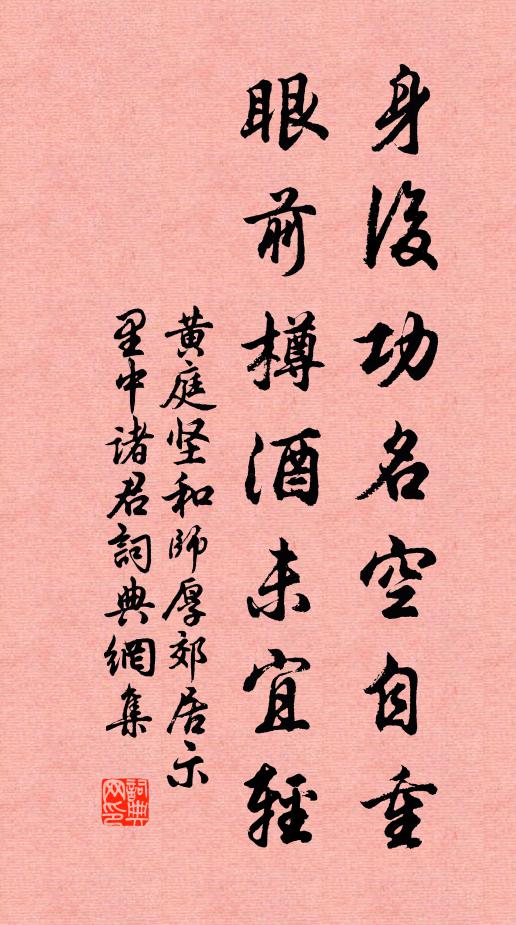 身後功名空自重
眼前樽酒未宜輕
黄庭坚和師厚郊居示
里中诸君詞典網集
詞典网印